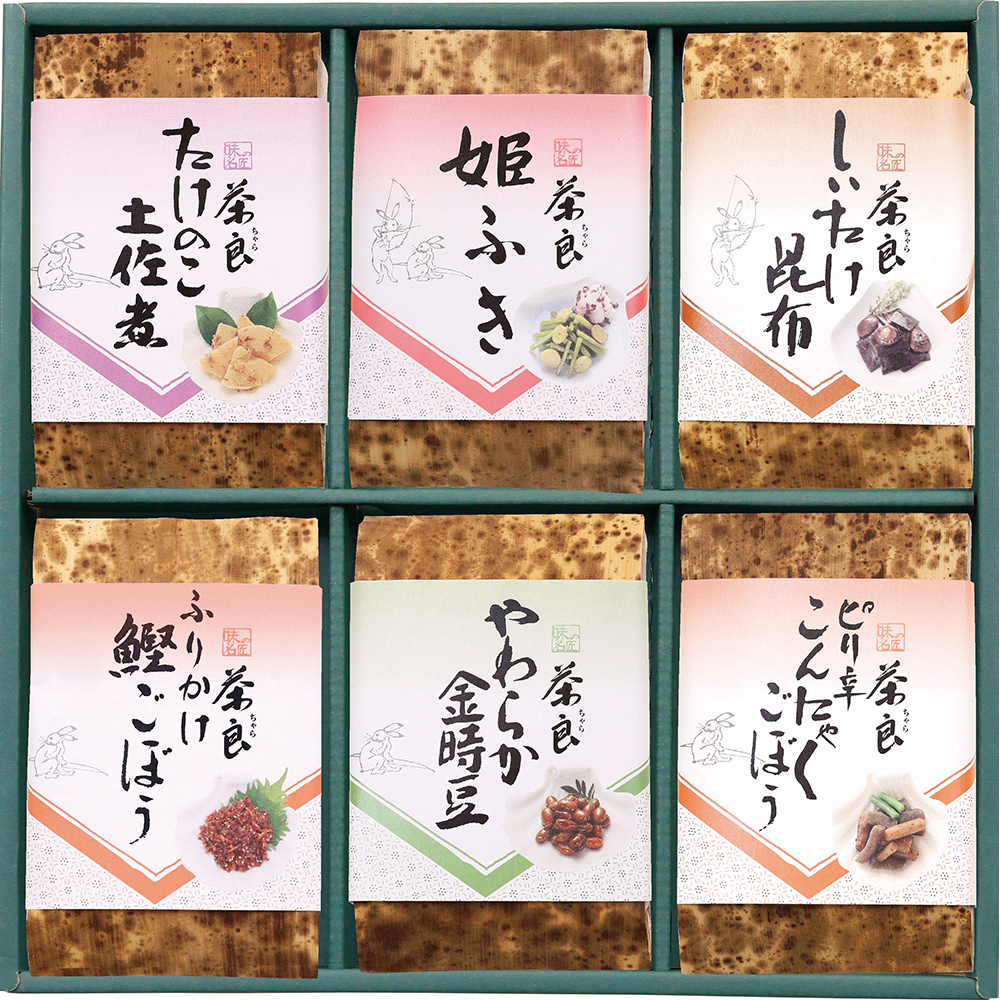 味の名匠
茶良
ちゃら
たけのこ
土佐煮
味の名匠
茶良
ちゃら
姫ふき
味の名匠
茶良
ちゃら
しいたけ
昆布
味の名匠
茶良
ちゃら
ふりかけ
鰹ごぼう
味の名匠
茶良
ちゃら
やわらか
金時豆
味の名匠
茶良
ちゃら
ピリ辛
こんにゃく
ごぼう